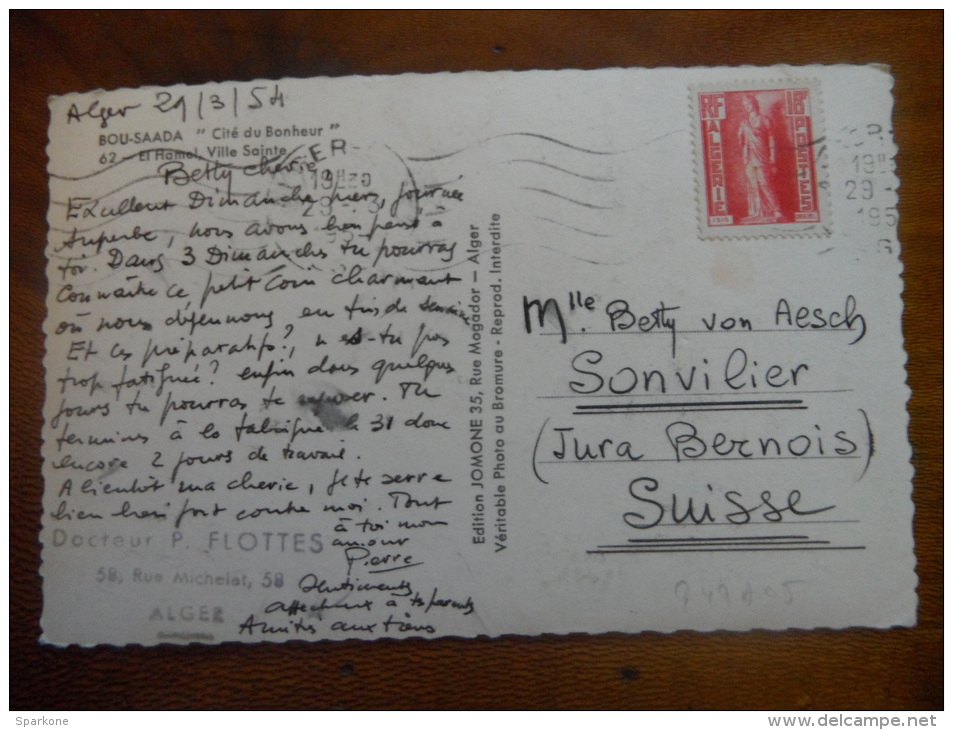 Alger 29/3/54
BOU-SAADA " Cité du Bonheur "
62 - El Hamel, Ville Sainte
Betty cherie,
Excellent Dimanche hier, journée
superbe, nous avons bien pensé à
toi. Dans 3 Dimanches tu pourras
connaître ce petit coin charmant
où nous déjeunons en fin de semaine
Et ces préparatifs?, n'es-tu pas
trop fatiguée? enfin dans quelques
jours tu pourras te reposer. Tu
termines à la fabrique le 31 donc
encore 2 jours de travail.
A bientôt ma cherie, je te serre
bien bien fort contre moi. Tout
à toi mon
amour
Pierre
Docteur P. FLOTTES
58, Rue Michelet, 58
ALGER
Sentiments
affectueux à tes parents
Amitiés aux tiens
Edition JOMONE 35, Rue Mogador - Alger
Véritable Photo au Bromure - Reprod. Interdite
RF
ALGERIE
15F
POSTES
ER
19H
29 - 3
195
Mlle. Betty von Aesch
Sonvilier
(Jura Bernois)
Suisse
Sparkone
www.delcampe.net